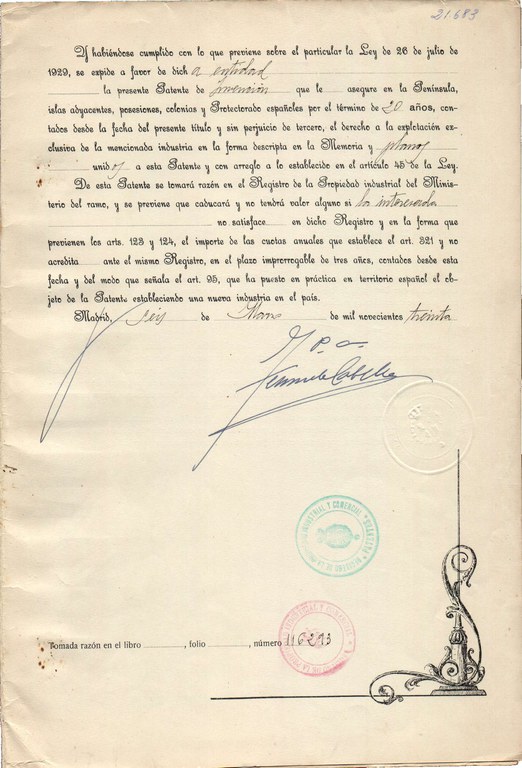 21.683
Y habiéndose cumplido con lo que previene sobre el particular la Ley de 26 de julio de
1929, se expide a favor de dich a entidad
la presente Patente de Invención que le asegure en la Península,
islas adyacentes, posesiones, colonias y Protectorado españoles por el término de 20 años, con-
tados desde la fecha del presente título y sin perjuicio de tercero, el derecho a la explotación ex-
clusiva de la mencionada industria en la forma descripta en la Memoria y planos
unidos a esta Patente y con arreglo a lo establecido en el artículo 45 de la Ley.
De esta Patente se tomará razón en el Registro de la Propiedad industrial del Minis-
terio del ramo, y se previene que caducará y no tendrá valor alguno si la interesada
no satisface en dicho Registro y en la forma que
previenen los arts. 123 y 124, el importe de las cuotas anuales que establece el art. 321 y no
acredita ante el mismo Registro, en el plazo improrrogable de tres años, contados desde esta
fecha y del modo que señala el art. 95, que ha puesto en práctica en territorio español el ob-
jeto de la Patente estableciendo una nueva industria en el país.
Madrid, seis de Marzo de mil novecientos treinta
P.
INDUSTRIAL Y COMERCIAL
REGISTRO DE LA
Tomada razón en el libro , folio , número 116293